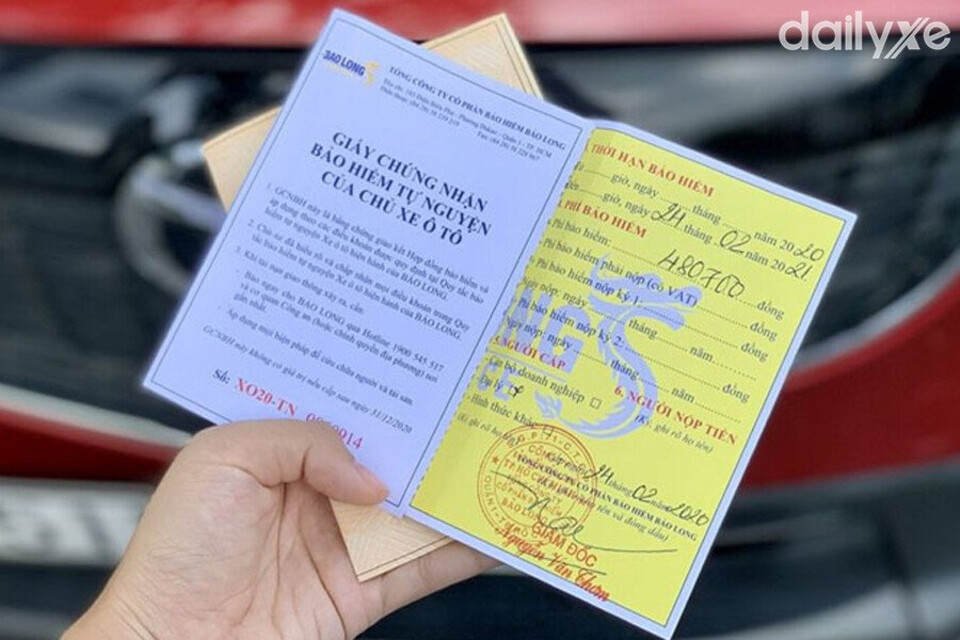 dailyxe
BAO LONG
TỔNG CÔNG TY CỔ PHẦN BẢO HIỂM BẢO LONG
GIẤY CHỨNG NHẬN
BẢO HIỂM TỰ NGUYỆN
CỦA CHỦ XE Ô TÔ
1. GCNBH này là bằng chứng giao kết Hợp đồng bảo hiểm và
áp dụng theo các điều khoản được quy định tại Quy tắc bảo
hiểm tự nguyện Xe ô tô hiện hành của BẢO LONG.
2. Chủ xe đã hiểu rõ và chấp nhận mọi điều khoản trong Quy
tắc bảo hiểm tự nguyện Xe ô tô hiện hành của BẢO LONG.
3. Khi tai nạn giao thông xảy ra, cần:
- Báo ngay cho BẢO LONG qua Hotline 1900 545 517
và cơ quan Công an (hoặc Chính quyền địa phương) nơi
gần nhất.
- Áp dụng mọi biện pháp để cứu chữa người và tài sản.
GCNBH này không có giá trị nếu cấp sau ngày 31/12/2020
Số: XO20-TN
THỜI HẠN BẢO HIỂM
giờ, ngày tháng năm 2020
giờ, ngày 24 tháng 02 năm 2021
PHÍ BẢO HIỂM
- Phí bảo hiểm: đồng
- Phí bảo hiểm phải nộp (có VAT) 480700 đồng
- Phí bảo hiểm nộp kỳ 1: đồng
ngày nộp: ngày tháng năm
- Phí bảo hiểm nộp kỳ 2: đồng
ngày nộp: ngày tháng năm
5. NGƯỜI CẤP
Cán bộ doanh nghiệp
Đại lý
Hình thức khác
6. NGƯỜI NỘP TIỀN
(Ký, ghi rõ họ tên)
ngày 24 tháng 02 năm 2020
TỔNG CÔNG TY CỔ PHẦN BẢO HIỂM BẢO LONG
GIÁM ĐỐC
Nguyễn Văn Thơm